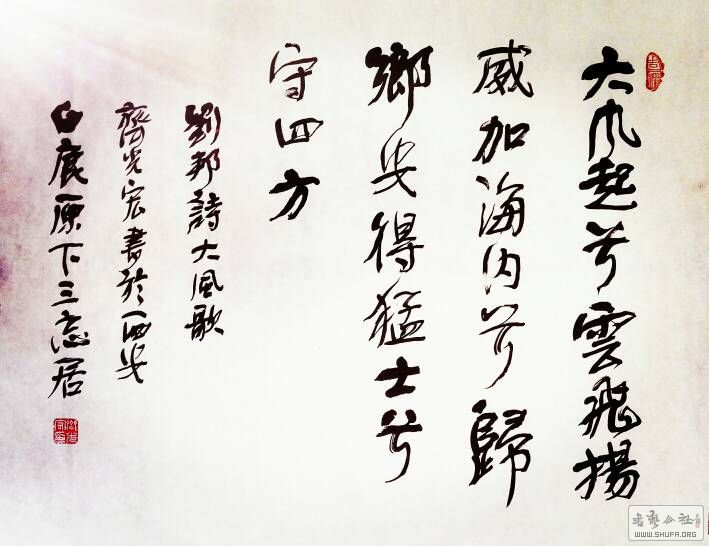 大风起兮雲飛揚
威加海内兮歸
鄉安得猛士兮
守四方
劉邦詩大風歌
齊光宏書於西安
白鹿原下三志居
書藝公社
WWW.SHUFA.ORG